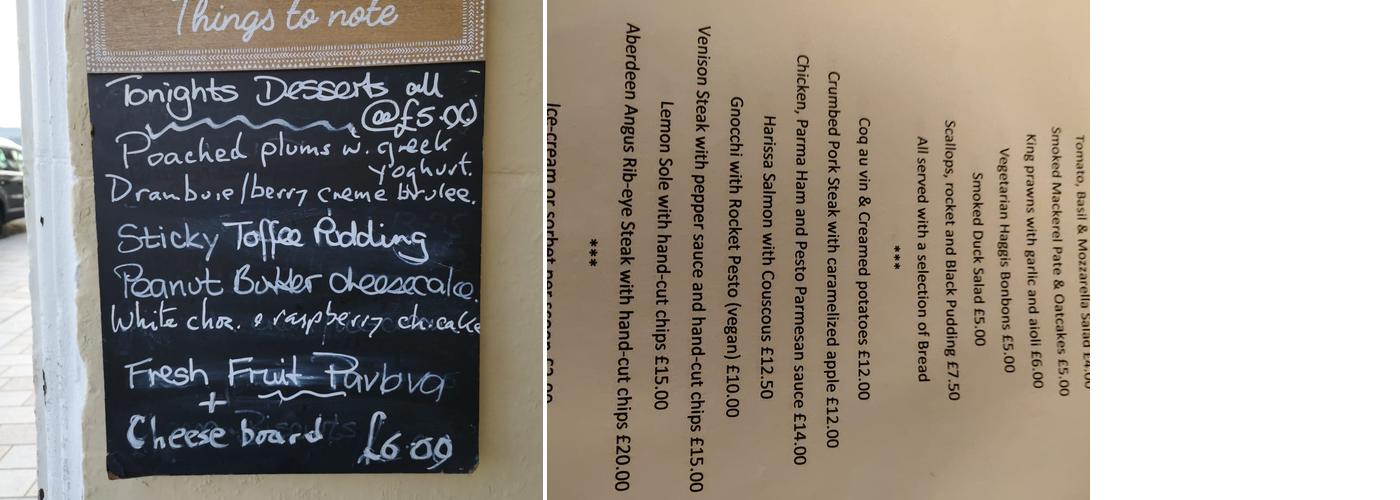 Things to note
Tonights Desserts all
@£5.00
Poached plums w. greek
yoghurt.
Drambuie/berry creme brulee.
Sticky Toffee Pudding
Peanut Butter cheesecake.
White choc. & raspberry ch.cake
Fresh Fruit Pavlova
+
Cheese board £6.00
Tomato, Basil & Mozzarella Salad £4.00
Smoked Mackerel Pate & Oatcakes £5.00
King prawns with garlic and aioli £6.00
Vegetarian Haggis Bonbons £5.00
Smoked Duck Salad £5.00
Scallops, rocket and Black Pudding £7.50
All served with a selection of Bread
***
Coq au vin & Creamed potatoes £12.00
Crumbed Pork Steak with caramelized apple £12.00
Chicken, Parma Ham and Pesto Parmesan sauce £14.00
Harissa Salmon with Couscous £12.50
Gnocchi with Rocket Pesto (vegan) £10.00
Venison Steak with pepper sauce and hand-cut chips £15.00
Lemon Sole with hand-cut chips £15.00
Aberdeen Angus Rib-eye Steak with hand-cut chips £20.00
***
Ice-cream or sorbet per scoop